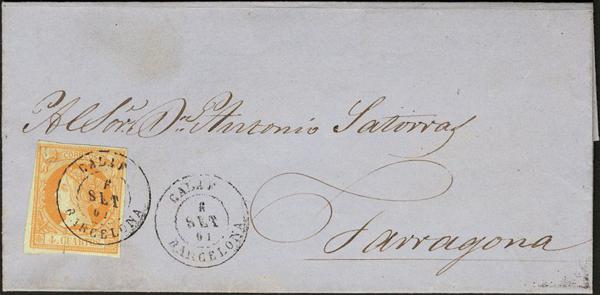 Al Sor. Dn. Antonio Satorras
Tarragona
CORREOS
4 CUARTOS
CALAF
6
SET
61
BARCELONA
CALAF
6
SET
61
BARCELONA